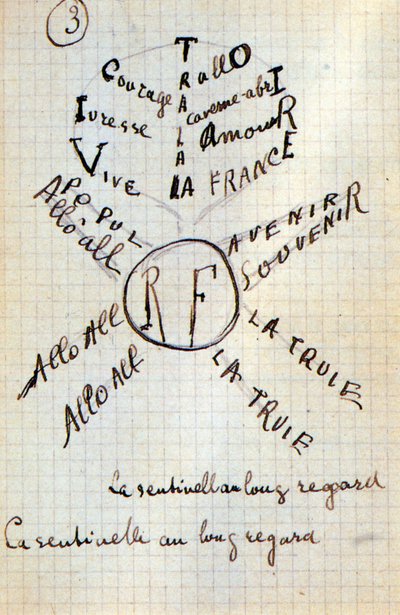 3
TRALALA
Courage
Rallo
Ivresse
caverne-abri
Amour
VIVE
LA FRANCE
Allo all
AVENIR
SOUVENIR
R F
Allo All
LA TRUIE
Allo All
LA TRUIE
La sentinell au long regard
La sentinelle au long regard